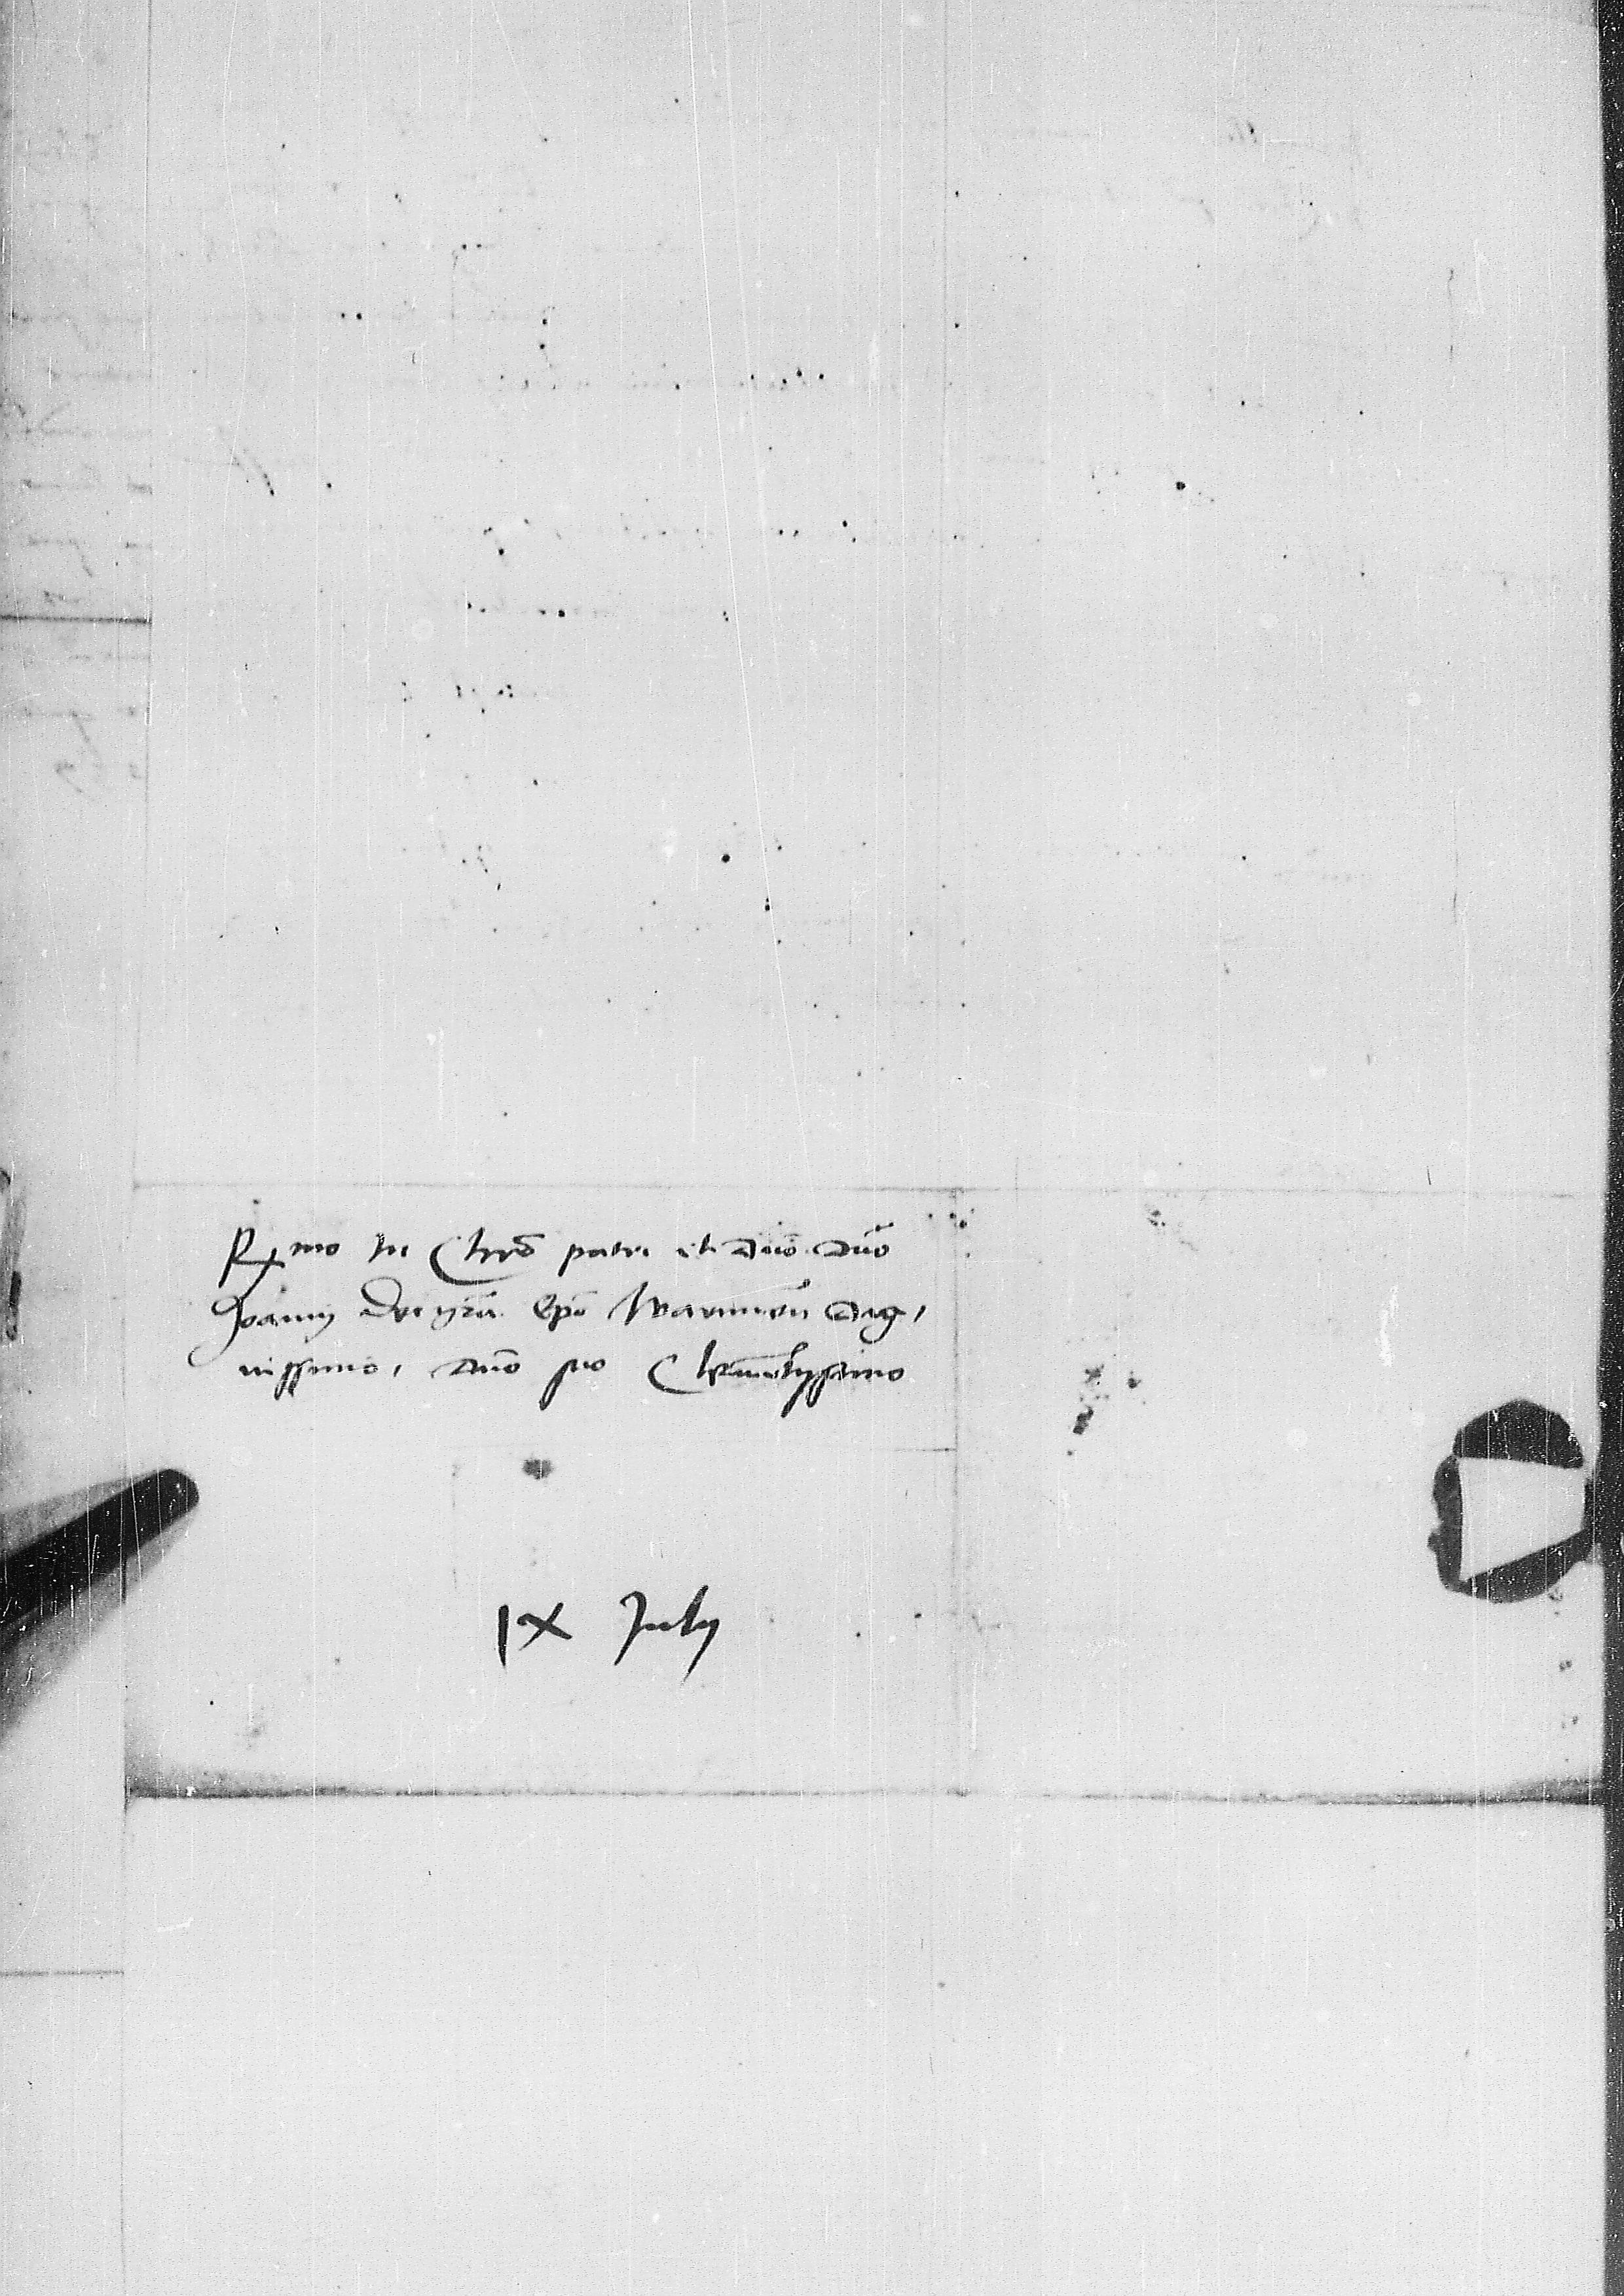 Rmo In Chro patri et dno dno
Joanni Dei gra Epo Warmien dig,
nissimo, dno suo Clementissimo
IX July